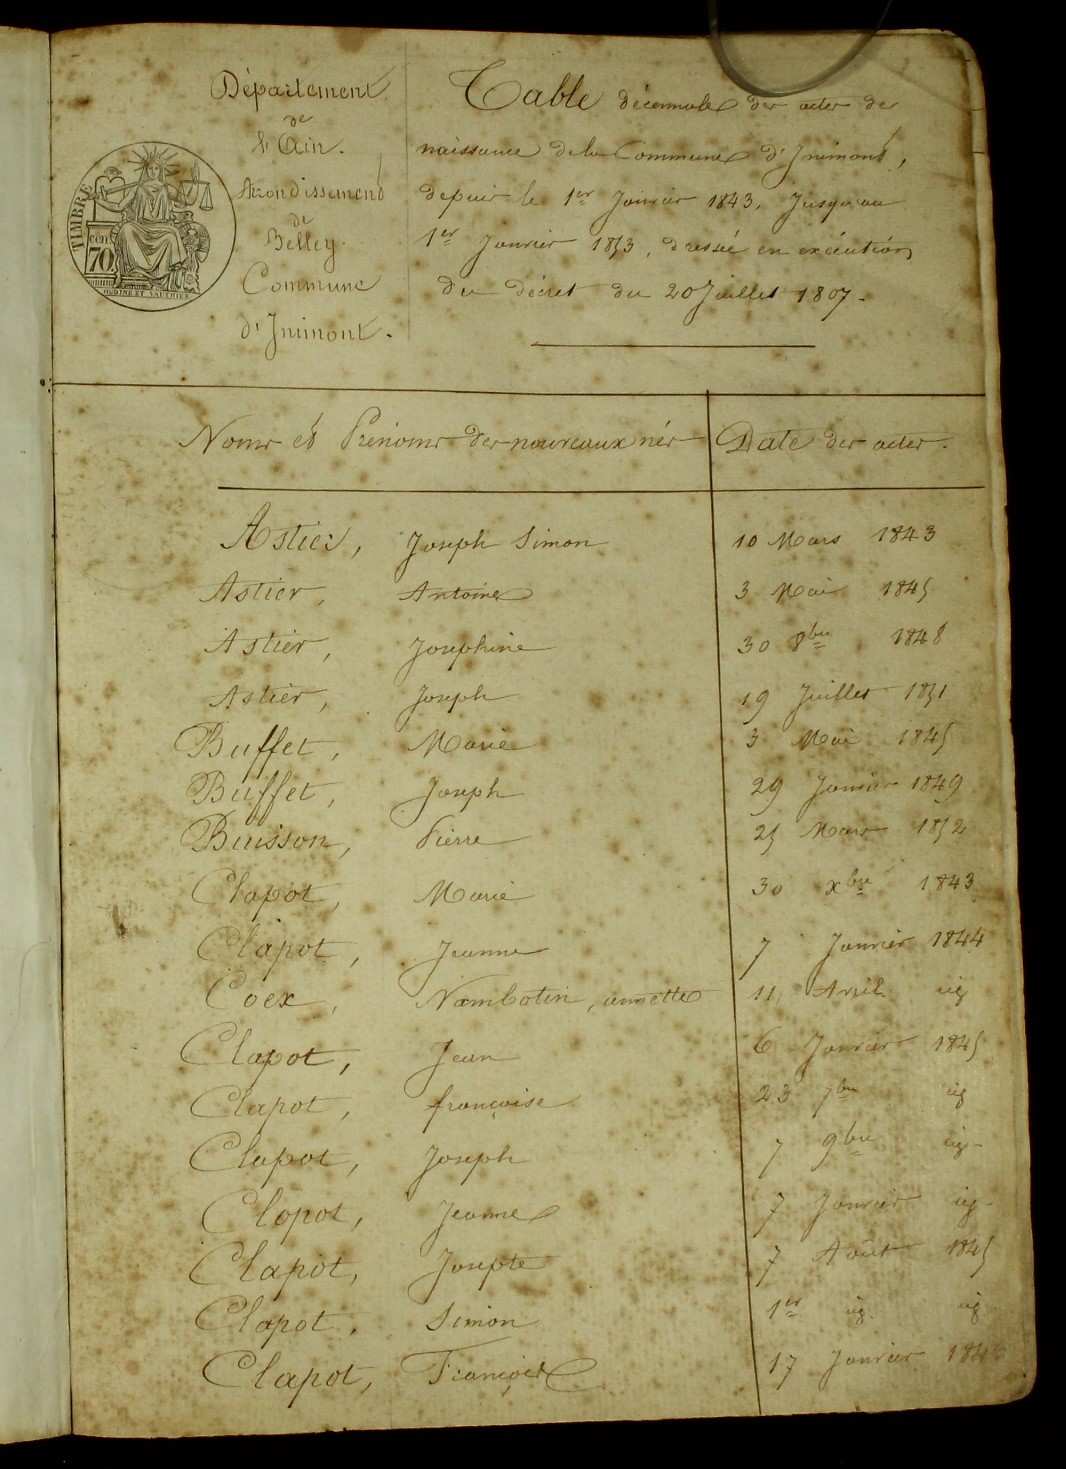 Département
de
l'Ain.
Arrondissement
de
Belley.
Commune
d'Inimont.
TIMBRE
CEN.
70
Table décennale des actes de
naissance de la Commune d'Inimont,
depuis le 1er Janvier 1843, Jusqu'au
1er Janvier 1853, dressée en exécution
du décret du 20 Juillet 1807.
Noms et Prénoms des nouveaux nés Date des actes.
Astier, Joseph Simon 10 Mars 1843
Astier, Antoine 3 Mai 1845
Astier, Joséphine 30 8bre 1848
Astier, Joseph 19 Juillet 1851
Buffet, Marie 3 Mai 1845
Buffet, Joseph 29 Janvier 1849
Buisson, Pierre 25 Mars 1852
Clapot, Marie 30 xbre 1843
Clapot, Jeanne 7 Janvier 1844
Coex, Nambotin, annette 11 Avril id
Clapot, Jean 6 Janvier 1845
Clapot, françoise 23 7bre id
Clapot, Joseph 7 9bre id
Clapot, Jeanne 7 Janvier id
Clapot, Josepte 7 Août 1845
Clapot, Simon 1er id id
Clapot, François 17 Janvier